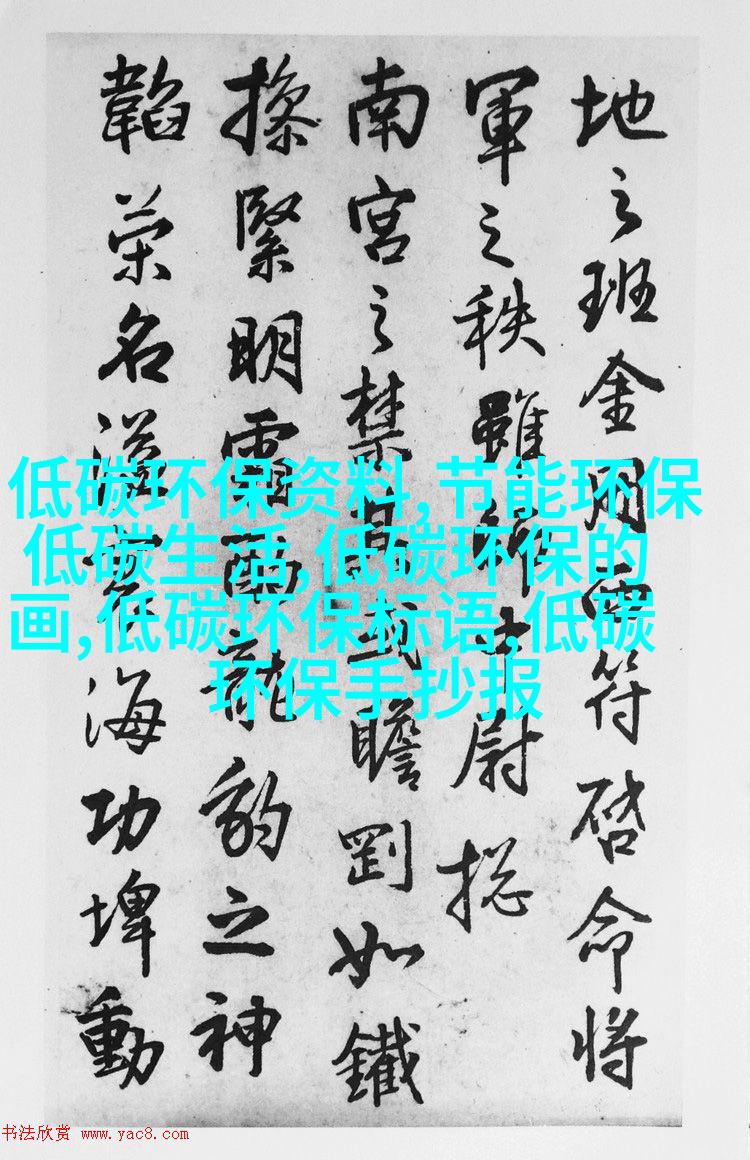 地之班金用符啓命将
軍之秩雖中尉揔
南宫之禁瞻如鐵
操緊明龍豹之神
韜榮名海功埤動
低碳环保资料,节能环保
低碳生活,低碳环保的
画,低碳环保标语,低碳
环保手抄报
书法欣赏 www.yac8.com